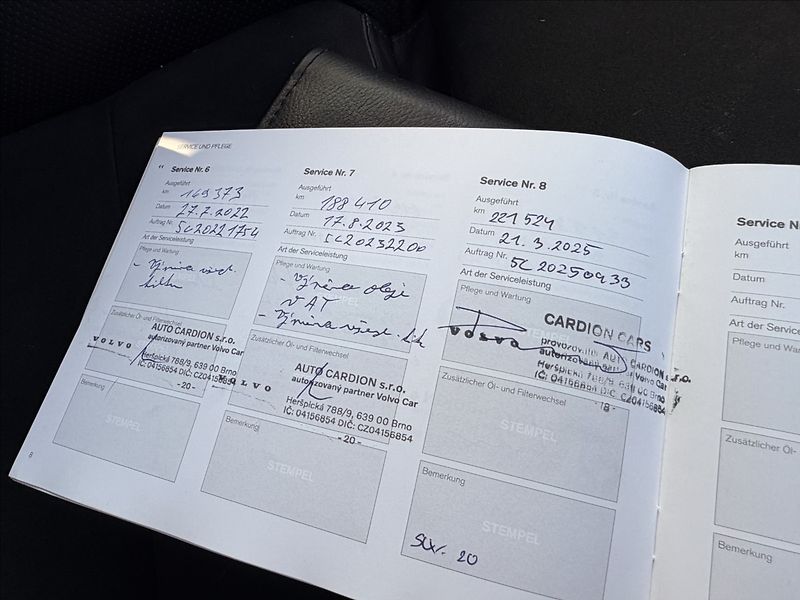 SERVICE UND PFLEGE
Service Nr. 6
Ausgeführt
km 169373
Datum 27.7.2022
Auftrag Nr. SC20221754
Art der Serviceleistung
Pflege und Wartung
- Výměna
Zusätzlicher Öl- und Filterwechsel
VOLVO
AUTO CARDION s.r.o.
autorizovaný partner Volvo Car
Heršpická 788/9, 639 00 Brno
IČ: 04156854 DIČ: CZ04156854
- 20 -
Bemerkung
STEMPEL
8
Service Nr. 7
Ausgeführt
km 188410
Datum 17.8.2023
Auftrag Nr. SC20232200
Art der Serviceleistung
Pflege und Wartung
STEMPEL
- Výměna oleje
v AT
- Výměna
Zusätzlicher Öl- und Filterwechsel
VOLVO
AUTO CARDION s.r.o.
autorizovaný partner Volvo Car
Heršpická 788/9, 639 00 Brno
IČ: 04156854 DIČ: CZ04156854
- 20 -
Bemerkung
STEMPEL
Service Nr. 8
Ausgeführt
km 221524
Datum 21.3.2025
Auftrag Nr. SC20250933
Art der Serviceleistung
Pflege und Wartung
VOLVO
CARDION CARS
provozovatel AUTO CARDION s.r.o.
autorizovaný partner Volvo Car
Heršpická 788/9, 639 00 Brno
IČ: 04156854 DIČ: CZ04156854
- 18 -
Zusätzlicher Öl- und Filterwechsel
STEMPEL
Bemerkung
STEMPEL
20
Service
Ausgeführt
km
Datum
Auftrag Nr.
Art der
Pflege und
Zusätzlicher Öl-
Bemerkung